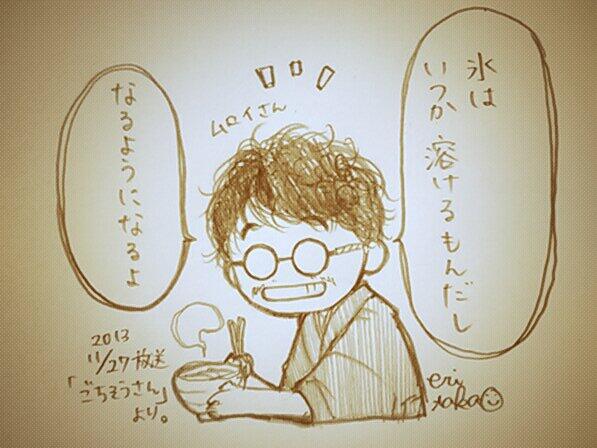 氷は
いつか溶けるもんだし
なるようになるよ
ムロイさん
2013
11/27放送
「ごちそうさん」
より。
eri
taka